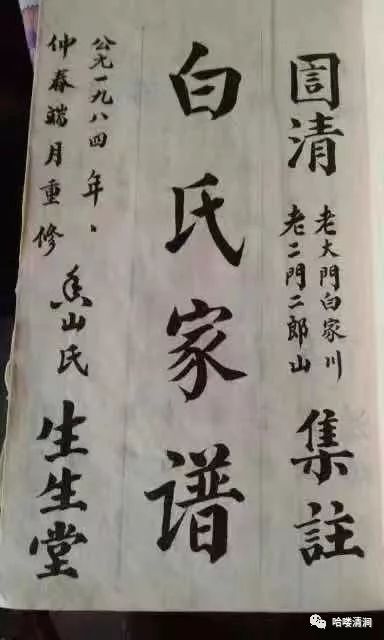 圁清
老大門白家川
老二門二郎山
集註
白氏家谱
公元一九八四年、
仲春端月重修
香山氏
生生堂
哈喽清涧